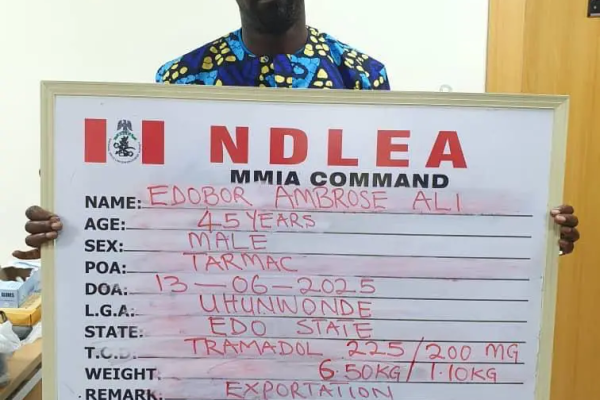 NDLEA
MMIA COMMAND
NAME: EDOBOR AMBROSE ALI
AGE: 45 YEARS
SEX: MALE
POA: TARMAC
DOA: 13-06-2025
L.G.A: UHUNWONDE
STATE: EDO STATE
T.O.D: TRAMADOL 225/200 MG
WEIGHT: 6.50KG/1.10KG
REMARK: EXPORTATION